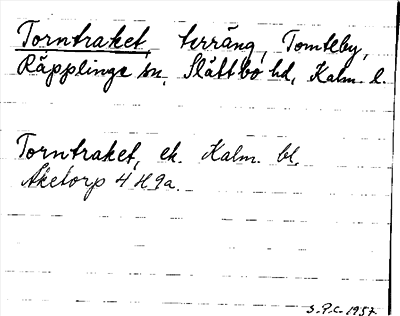 Torntraket, terräng, Tomteby,
Räpplinge sn, Slättbo hd, Kalm. l.
Torntraket, ek. Kalm. bl.
Åketorp 4 H 9a.
S.P.C. 1957